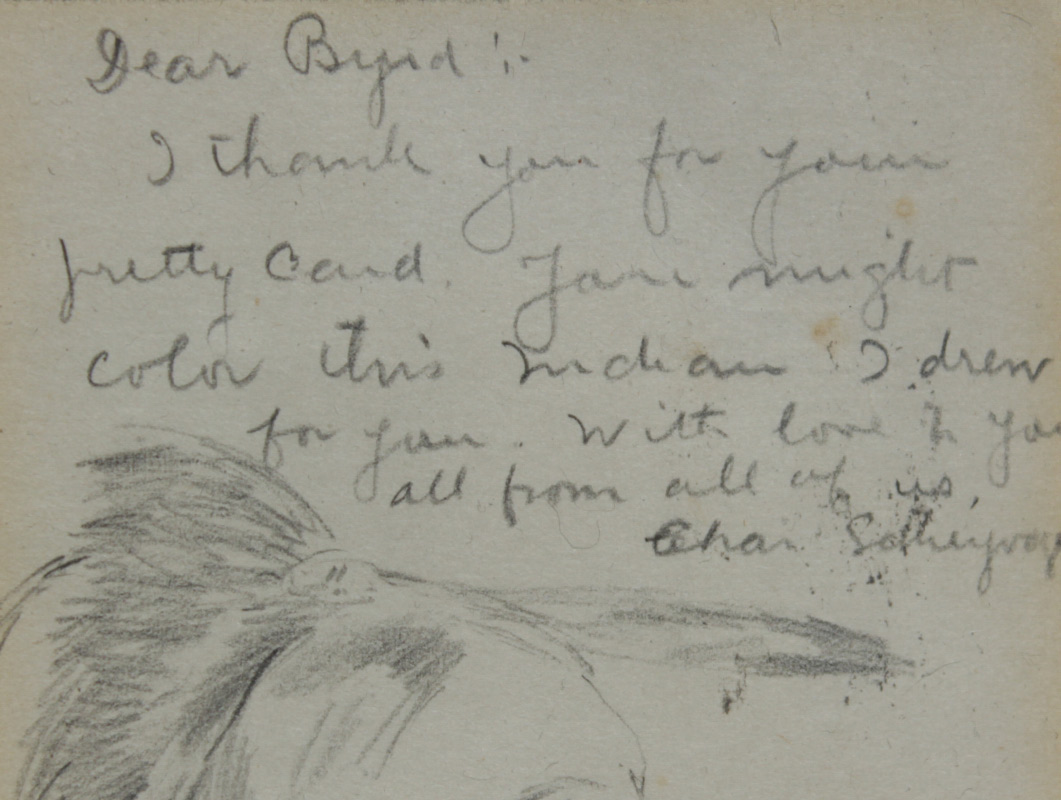 Dear Byrd :-
I thank you for your
pretty card. You might
color this Indian I drew
for you. With love to you
all from all of us.
Chas